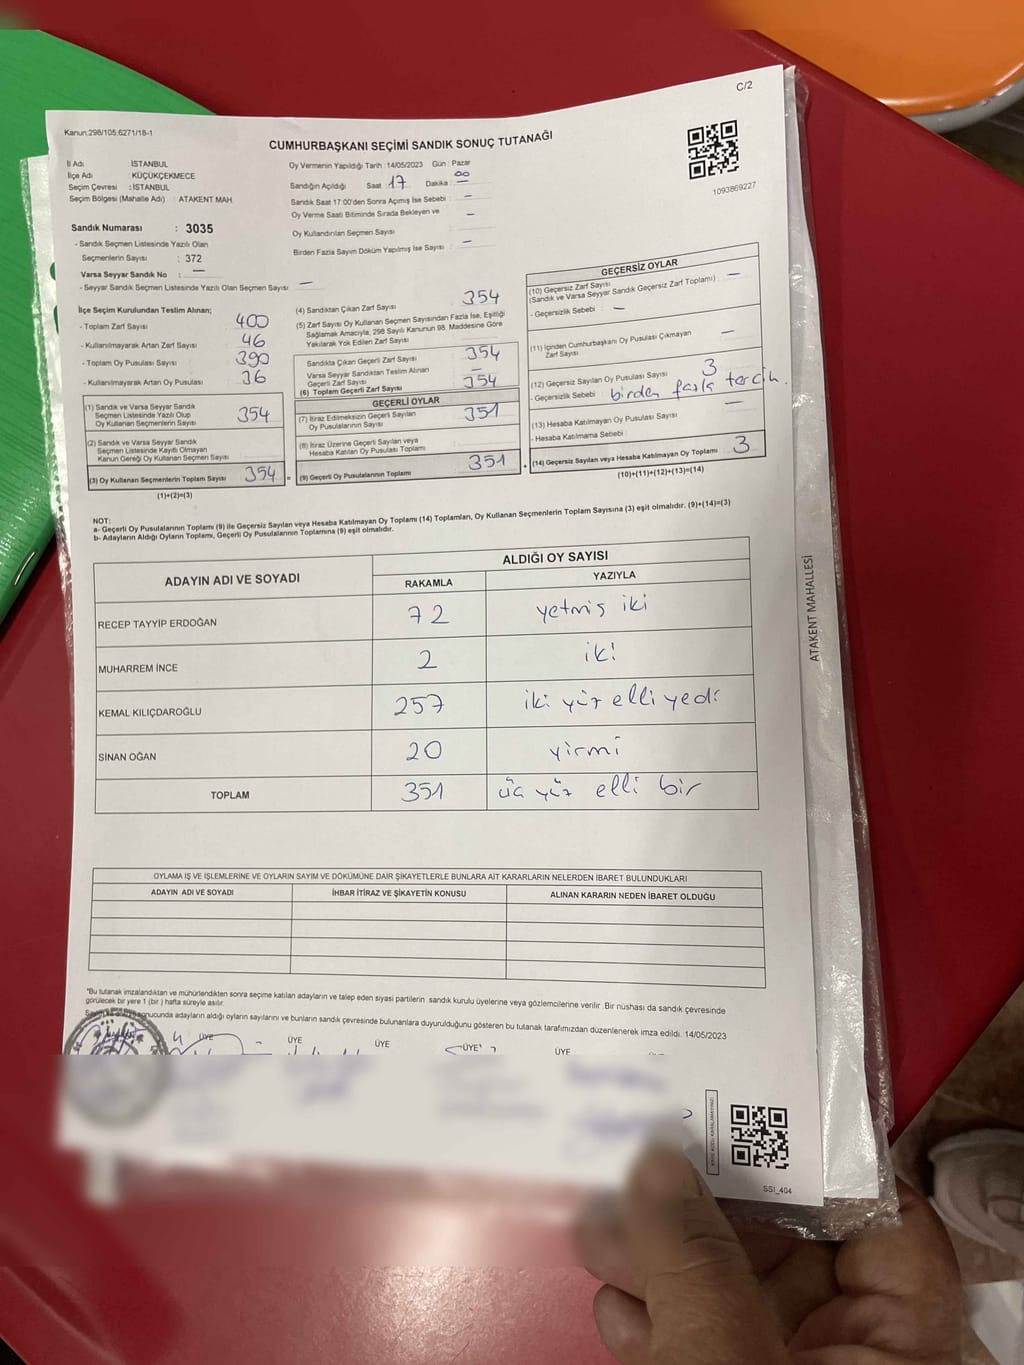 C/2
Kanun:298/105;6271/18-1
CUMHURBAŞKANI SEÇİMİ SANDIK SONUÇ TUTANAĞI
1093869227
İl Adı : İSTANBUL
İlçe Adı : KÜÇÜKÇEKMECE
Seçim Çevresi : İSTANBUL
Seçim Bölgesi (Mahalle Adı) : ATAKENT MAH.
Oy Vermenin Yapıldığı Tarih :14/05/2023 Gün : Pazar
Sandığın Açıldığı Saat : 17 Dakika : 00
Sandık Saat 17:00'den Sonra Açımış İse Sebebi : —
Oy Verme Saati Bitiminde Sırada Bekleyen ve
Oy Kullandırılan Seçmen Sayısı : —
Birden Fazla Sayım Döküm Yapılmış İse Sayısı : —
Sandık Numarası : 3035
- Sandık Seçmen Listesinde Yazılı Olan
Seçmenlerin Sayısı : 372
Varsa Seyyar Sandık No : —
- Seyyar Sandık Seçmen Listesinde Yazılı Olan Seçmen Sayısı : —
İlçe Seçim Kurulundan Teslim Alınan;
- Toplam Zarf Sayısı 400
- Kullanılmayarak Artan Zarf Sayısı 46
- Toplam Oy Pusulası Sayısı 390
- Kullanılmayarak Artan Oy Pusulası 36
(1) Sandık ve Varsa Seyyar Sandık
Seçmen Listesinde Yazılı Olup
Oy Kullanan Seçmenlerin Sayısı 354
(2) Sandık ve Varsa Seyyar Sandık
Seçmen Listesinde Kayıtlı Olmayan
Kanun Gereği Oy Kullanan Seçmen Sayısı
(3) Oy Kullanan Seçmenlerin Toplam Sayısı 354
(1)+(2)=(3)
(4) Sandıktan Çıkan Zarf Sayısı 354
(5) Zarf Sayısı Oy Kullanan Seçmen Sayısından Fazla İse, Eşitliği
Sağlamak Amacıyla, 298 Sayılı Kanunun 98. Maddesine Göre
Yakılarak Yok Edilen Zarf Sayısı
Sandıkta Çıkan Geçerli Zarf Sayısı 354
Varsa Seyyar Sandıktan Teslim Alınan
Geçerli Zarf Sayısı —
(6) Toplam Geçerli Zarf Sayısı 354
GEÇERLİ OYLAR
(7) İtiraz Edilmeksizin Geçerli Sayılan
Oy Pusulalarının Sayısı 351
(8) İtiraz Üzerine Geçerli Sayılan veya
Hesaba Katılan Oy Pusulası Toplamı
= (9) Geçerli Oy Pusulalarının Toplamı 351
GEÇERSİZ OYLAR
(10) Geçersiz Zarf Sayısı
(Sandık ve Varsa Seyyar Sandık Geçersiz Zarf Toplamı) : —
- Geçersizlik Sebebi : —
(11) İçinden Cumhurbaşkanı Oy Pusulası Çıkmayan
Zarf Sayısı —
(12) Geçersiz Sayılan Oy Pusulası Sayısı 3
- Geçersizlik Sebebi : birden fazla tercih.
(13) Hesaba Katılmayan Oy Pusulası Sayısı —
- Hesaba Katılmama Sebebi :
+ (14) Geçersiz Sayılan veya Hesaba Katılmayan Oy Toplamı 3
(10)+(11)+(12)+(13)=(14)
NOT:
a- Geçerli Oy Pusulalarının Toplamı (9) ile Geçersiz Sayılan veya Hesaba Katılmayan Oy Toplamı (14) Toplamları, Oy Kullanan Seçmenlerin Toplam Sayısına (3) eşit olmalıdır. (9)+(14)=(3)
b- Adayların Aldığı Oyların Toplamı, Geçerli Oy Pusulalarının Toplamına (9) eşit olmalıdır.
ADAYIN ADI VE SOYADI
ALDIĞI OY SAYISI
RAKAMLA YAZIYLA
RECEP TAYYİP ERDOĞAN 72 yetmiş iki
MUHARREM İNCE 2 iki
KEMAL KILIÇDAROĞLU 257 iki yüz elli yedi
SİNAN OĞAN 20 yirmi
TOPLAM 351 üç yüz elli bir
ATAKENT MAHALLESİ
OYLAMA İŞ VE İŞLEMLERİNE VE OYLARIN SAYIM VE DÖKÜMÜNE DAİR ŞİKAYETLERLE BUNLARA AİT KARARLARIN NELERDEN İBARET BULUNDUKLARI
ADAYIN ADI VE SOYADI İHBAR İTİRAZ VE ŞİKAYETİN KONUSU ALINAN KARARIN NEDEN İBARET OLDUĞU
*Bu tutanak imzalandıktan ve mühürlendikten sonra seçime katılan adayların ve talep eden siyasi partilerin sandık kurulu üyelerine veya gözlemcilerine verilir. Bir nüshası da sandık çevresinde
görülecek bir yere 1 (bir ) hafta süreyle asılır.
sonucunda adayların aldığı oyların sayılarını ve bunların sandık çevresinde bulunanlara duyurulduğunu gösteren bu tutanak tarafımızdan düzenlenerek imza edildi. 14/05/2023
ÜYE ÜYE ÜYE ÜYE ÜYE
SSİ_404